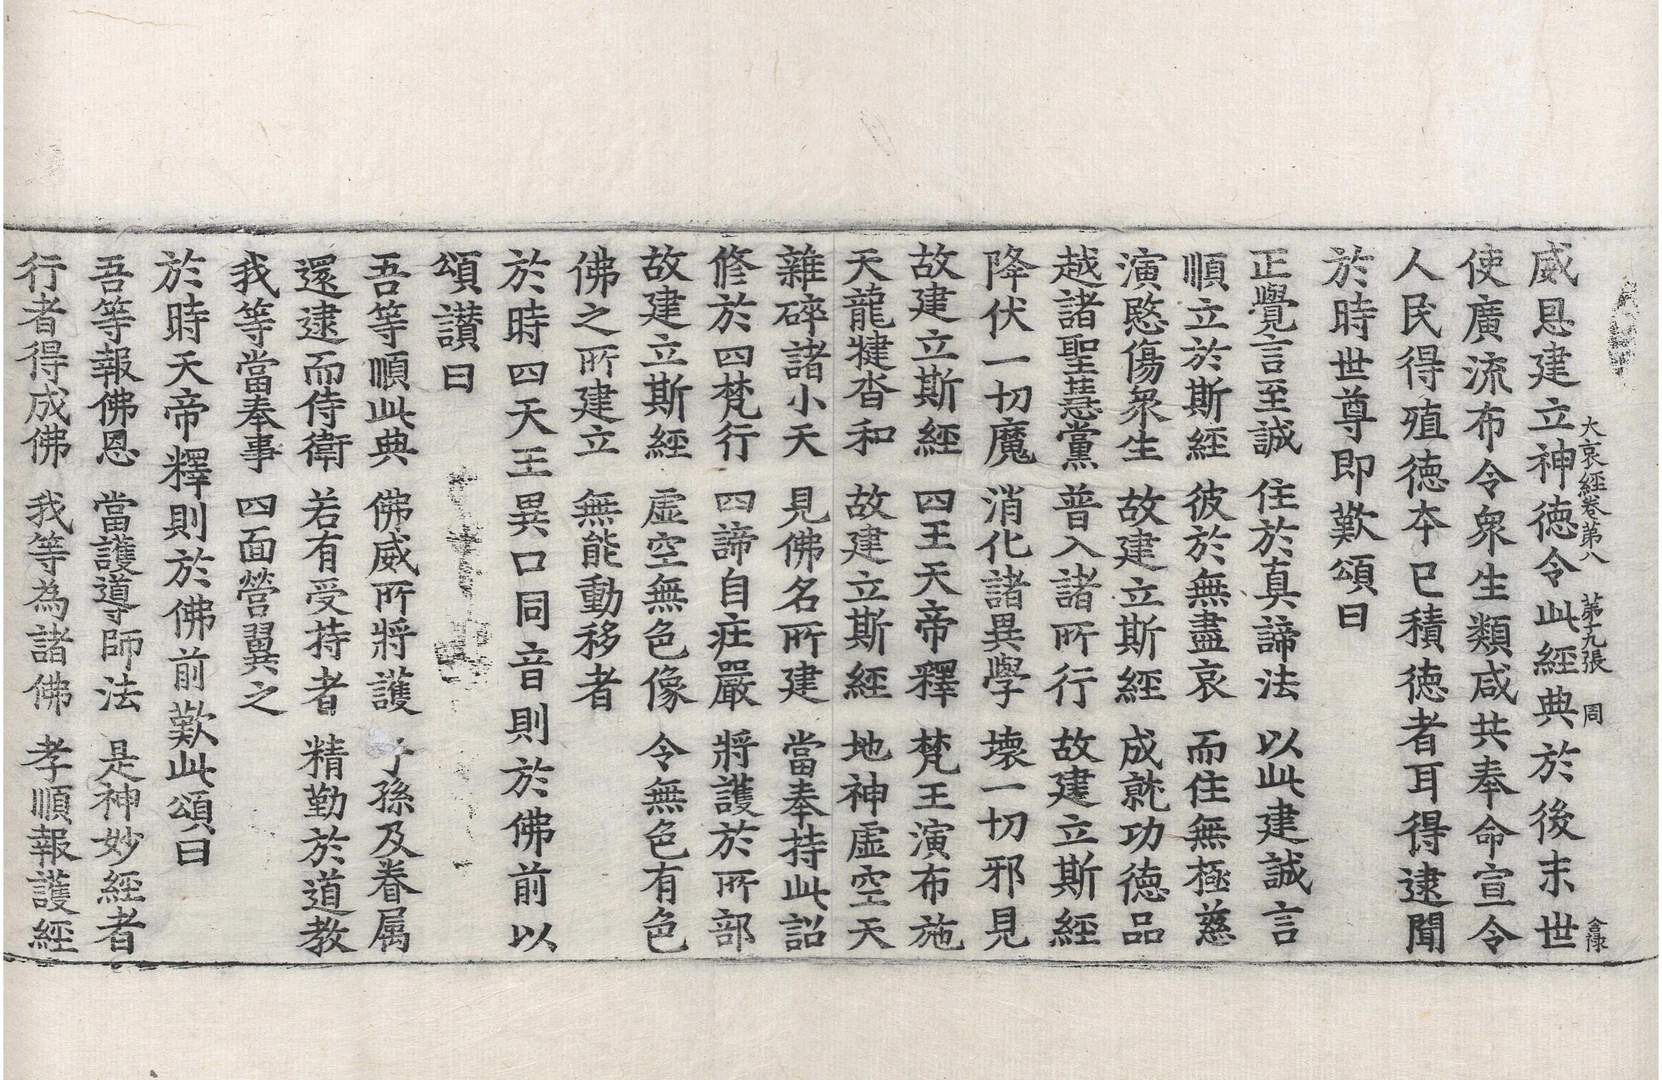 大哀經卷第八　第十九張　周
威恩建立神德令此經典於後末世
使廣流布令衆生類咸共奉命宣令
人民得殖德本已積德者耳得逮聞
於時世尊即歎頌曰
正覺言至誠　住於真諦法　以此建誠言
順立於斯經　彼於無盡哀　而住無極慈
演愍傷衆生　故建立斯經　成就功德品
越諸聖慧黨　普入諸所行　故建立斯經
降伏一切魔　消化諸異學　壞一切邪見
故建立斯經　四王天帝釋　梵王演布施
天龍揵沓和　故建立斯經　地神虛空天
雜碎諸小天　見佛名所建　當奉持此詔
修於四梵行　四諦自庄嚴　將護於所部
故建立斯經　虛空無色像　令無色有色
佛之所建立　無能動移者
於時四天王異口同音則於佛前以
頌讃曰
吾等順此典　佛威所將護　子孫及眷属
還逮而侍衛　若有受持者　精勤於道教
我等當奉事　四面營翼之
於時天帝釋則於佛前歎此頌曰
吾等報佛恩　當護導師法　是神妙經者
行者得成佛　我等為諸佛　孝順報護經